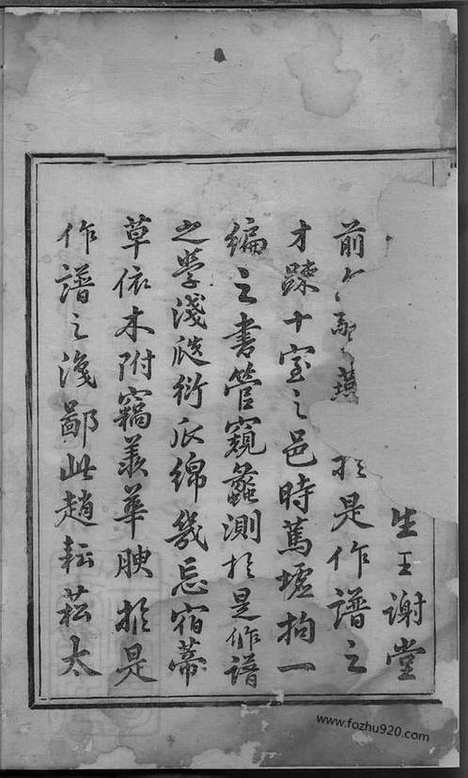 生王謝堂
前
於是作譜之
才踈十室之邑時篤墟拘一
編之書管窺蠡測於是作譜
之學淺瓞衍瓜綿幾忘宿蒂
草依木附竊羨華腴於是
作譜之淺鄙此趙耘菘太
www.fozhu920.com